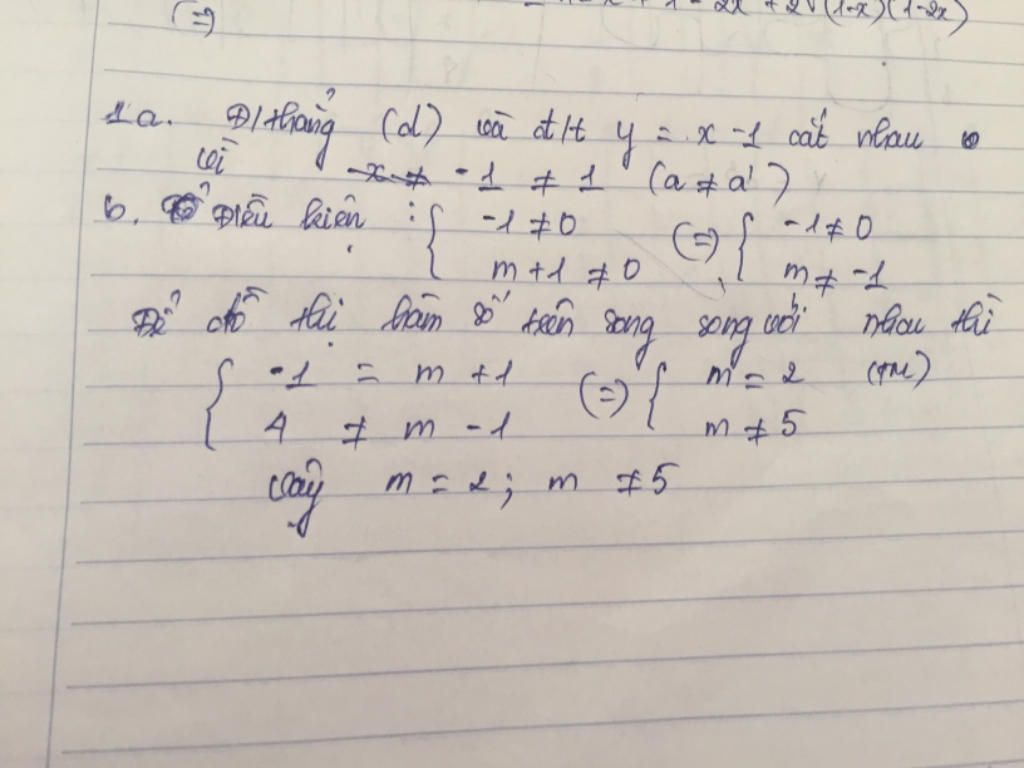 = 1 - x + 1 - 2x + 2√(1-x)(1-2x)
(=)
1a. Đ/thẳng (d) và đ/t y = x - 1 cắt nhau
vì - 1 ≠ 1 (a ≠ a')
b. Điều kiện : { -1 ≠ 0 (=) { -1 ≠ 0
m + 1 ≠ 0 m ≠ -1
Để đồ thị hàm số trên song song với nhau thì
{ -1 = m + 1 (=) { m = 2 (TM)
4 ≠ m - 1 m ≠ 5
Vậy m = 2 ; m ≠ 5